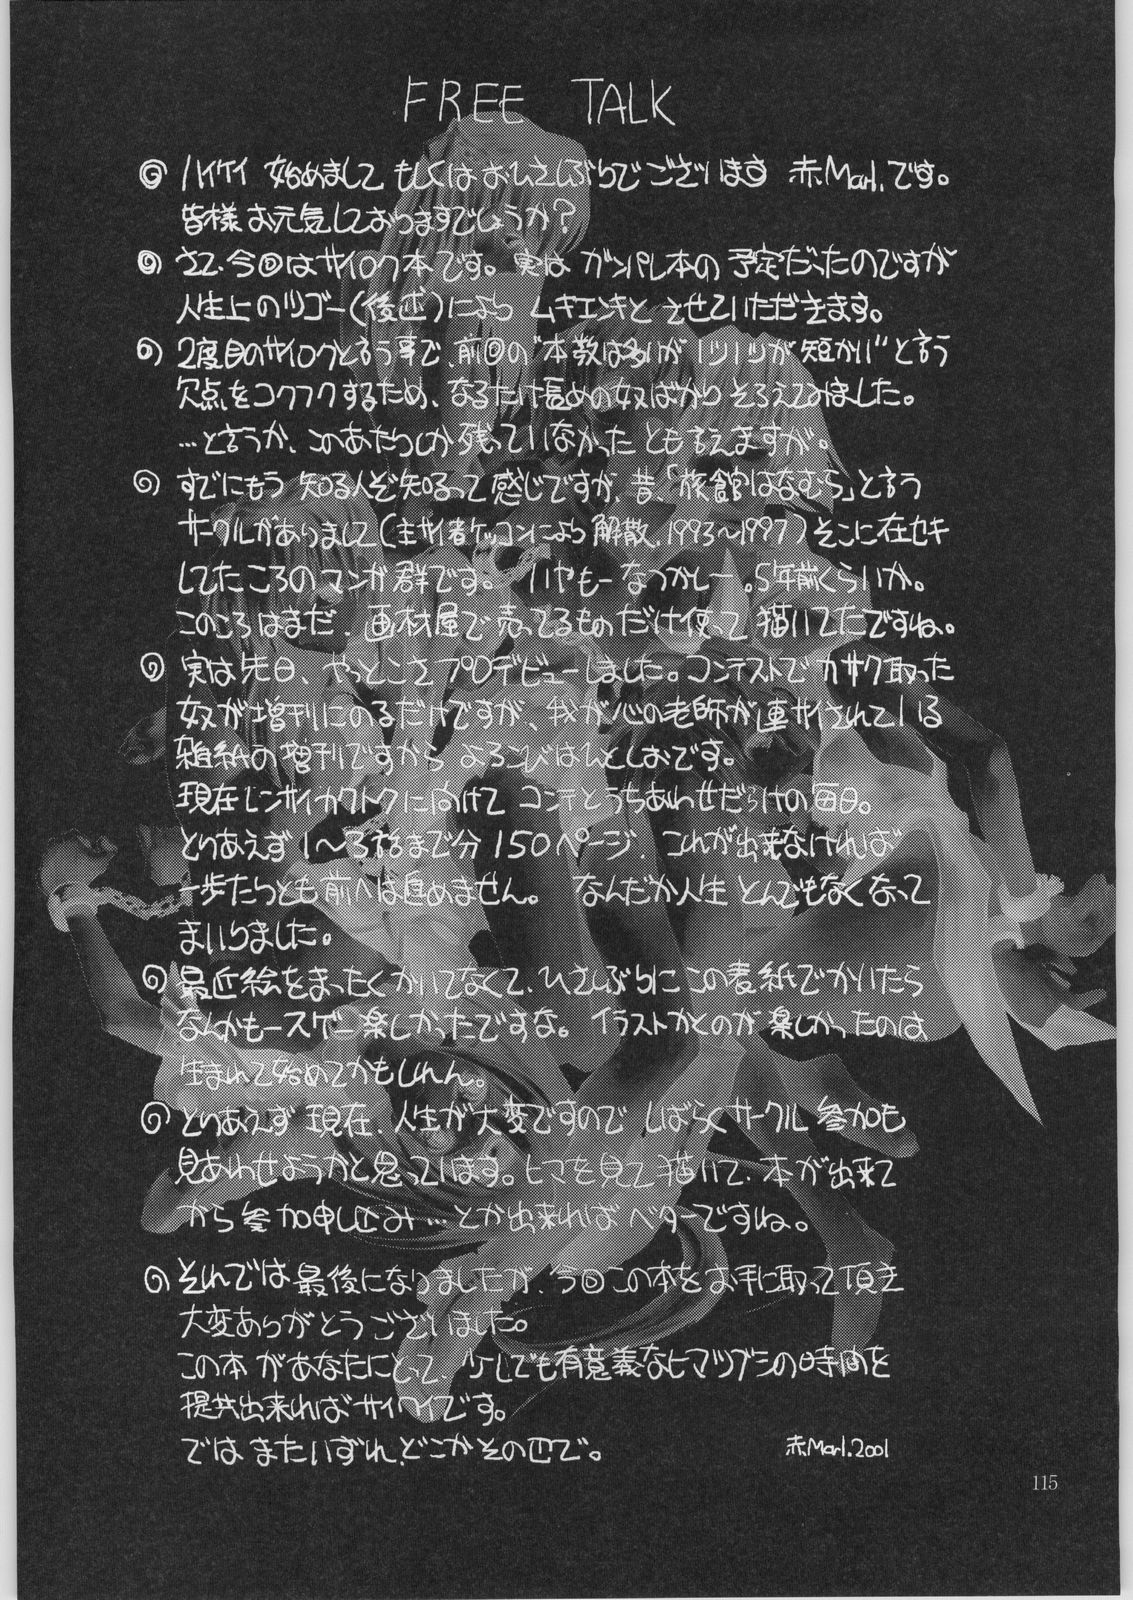 FREE TALK
ハイケイ 始めまして もしくはおひさしぶりでございます 赤Marl.です。
皆様お元気しておりますでしょうか?
さて、今回はサイロク本です。実は ガンパレ本の予定だったのですが
人生上のツゴー(後述)により ムキエンキと させていただきます。
2度目のサイロクと言う事で、前回の"本数は多いが1ツ1ツが短かい"と言う
欠点をコクフクするため、なるたけ長めの奴ばかりそろえてみました。
…と言うか、このあたりしか残っていなかったとも言えますが。
すでにもう 知る人ぞ知るって感じですが、昔、「旅館はなむら」と言う
サークルがありまして(主サイ者ケッコンにより解散、1993〜1997)そこに在セキ
してたころのマンガ群です。 いやもーなつかしー。5年前くらいか。
このころはまだ、画材屋で売ってるものだけ使って描いてたですね。
実は先日、やっとこさプロデビューしました。コンテストでカサク取った
奴が増刊にのるだけですが、我が心の老師が連サイされている
雑紙の増刊ですから よろこびはんとしおです。
現在レンサイカクトクに向けて コンテとうちあわせだらけの毎日。
とりあえず1〜3話まで分150ページ、これが出来なければ
一歩たりとも前へは進めません。 なんだか人生とんでもなくなって
まいりました。
最近絵をまったくかいてなくて、ひさしぶりにこの表紙でかいたら
なんかもースゲー楽しかったですな。イラストかくのが楽しかったのは
生まれて始めてかもしれん。
とりあえず現在、人生が大変ですので しばらくサークル参加も
見あわせようかと思っています。ヒマを見て描いて、本が出来て
から参加申し込み…とか出来ればベターですね。
それでは最後になりましたが、今回この本をお手に取って頂き
大変ありがとうございました。
この本があなたにとって、少しでも有意義なヒマツブシの時間を
提共出来ればサイワイです。
ではまたいずれ、どこかその辺で。
赤Marl.2001
115